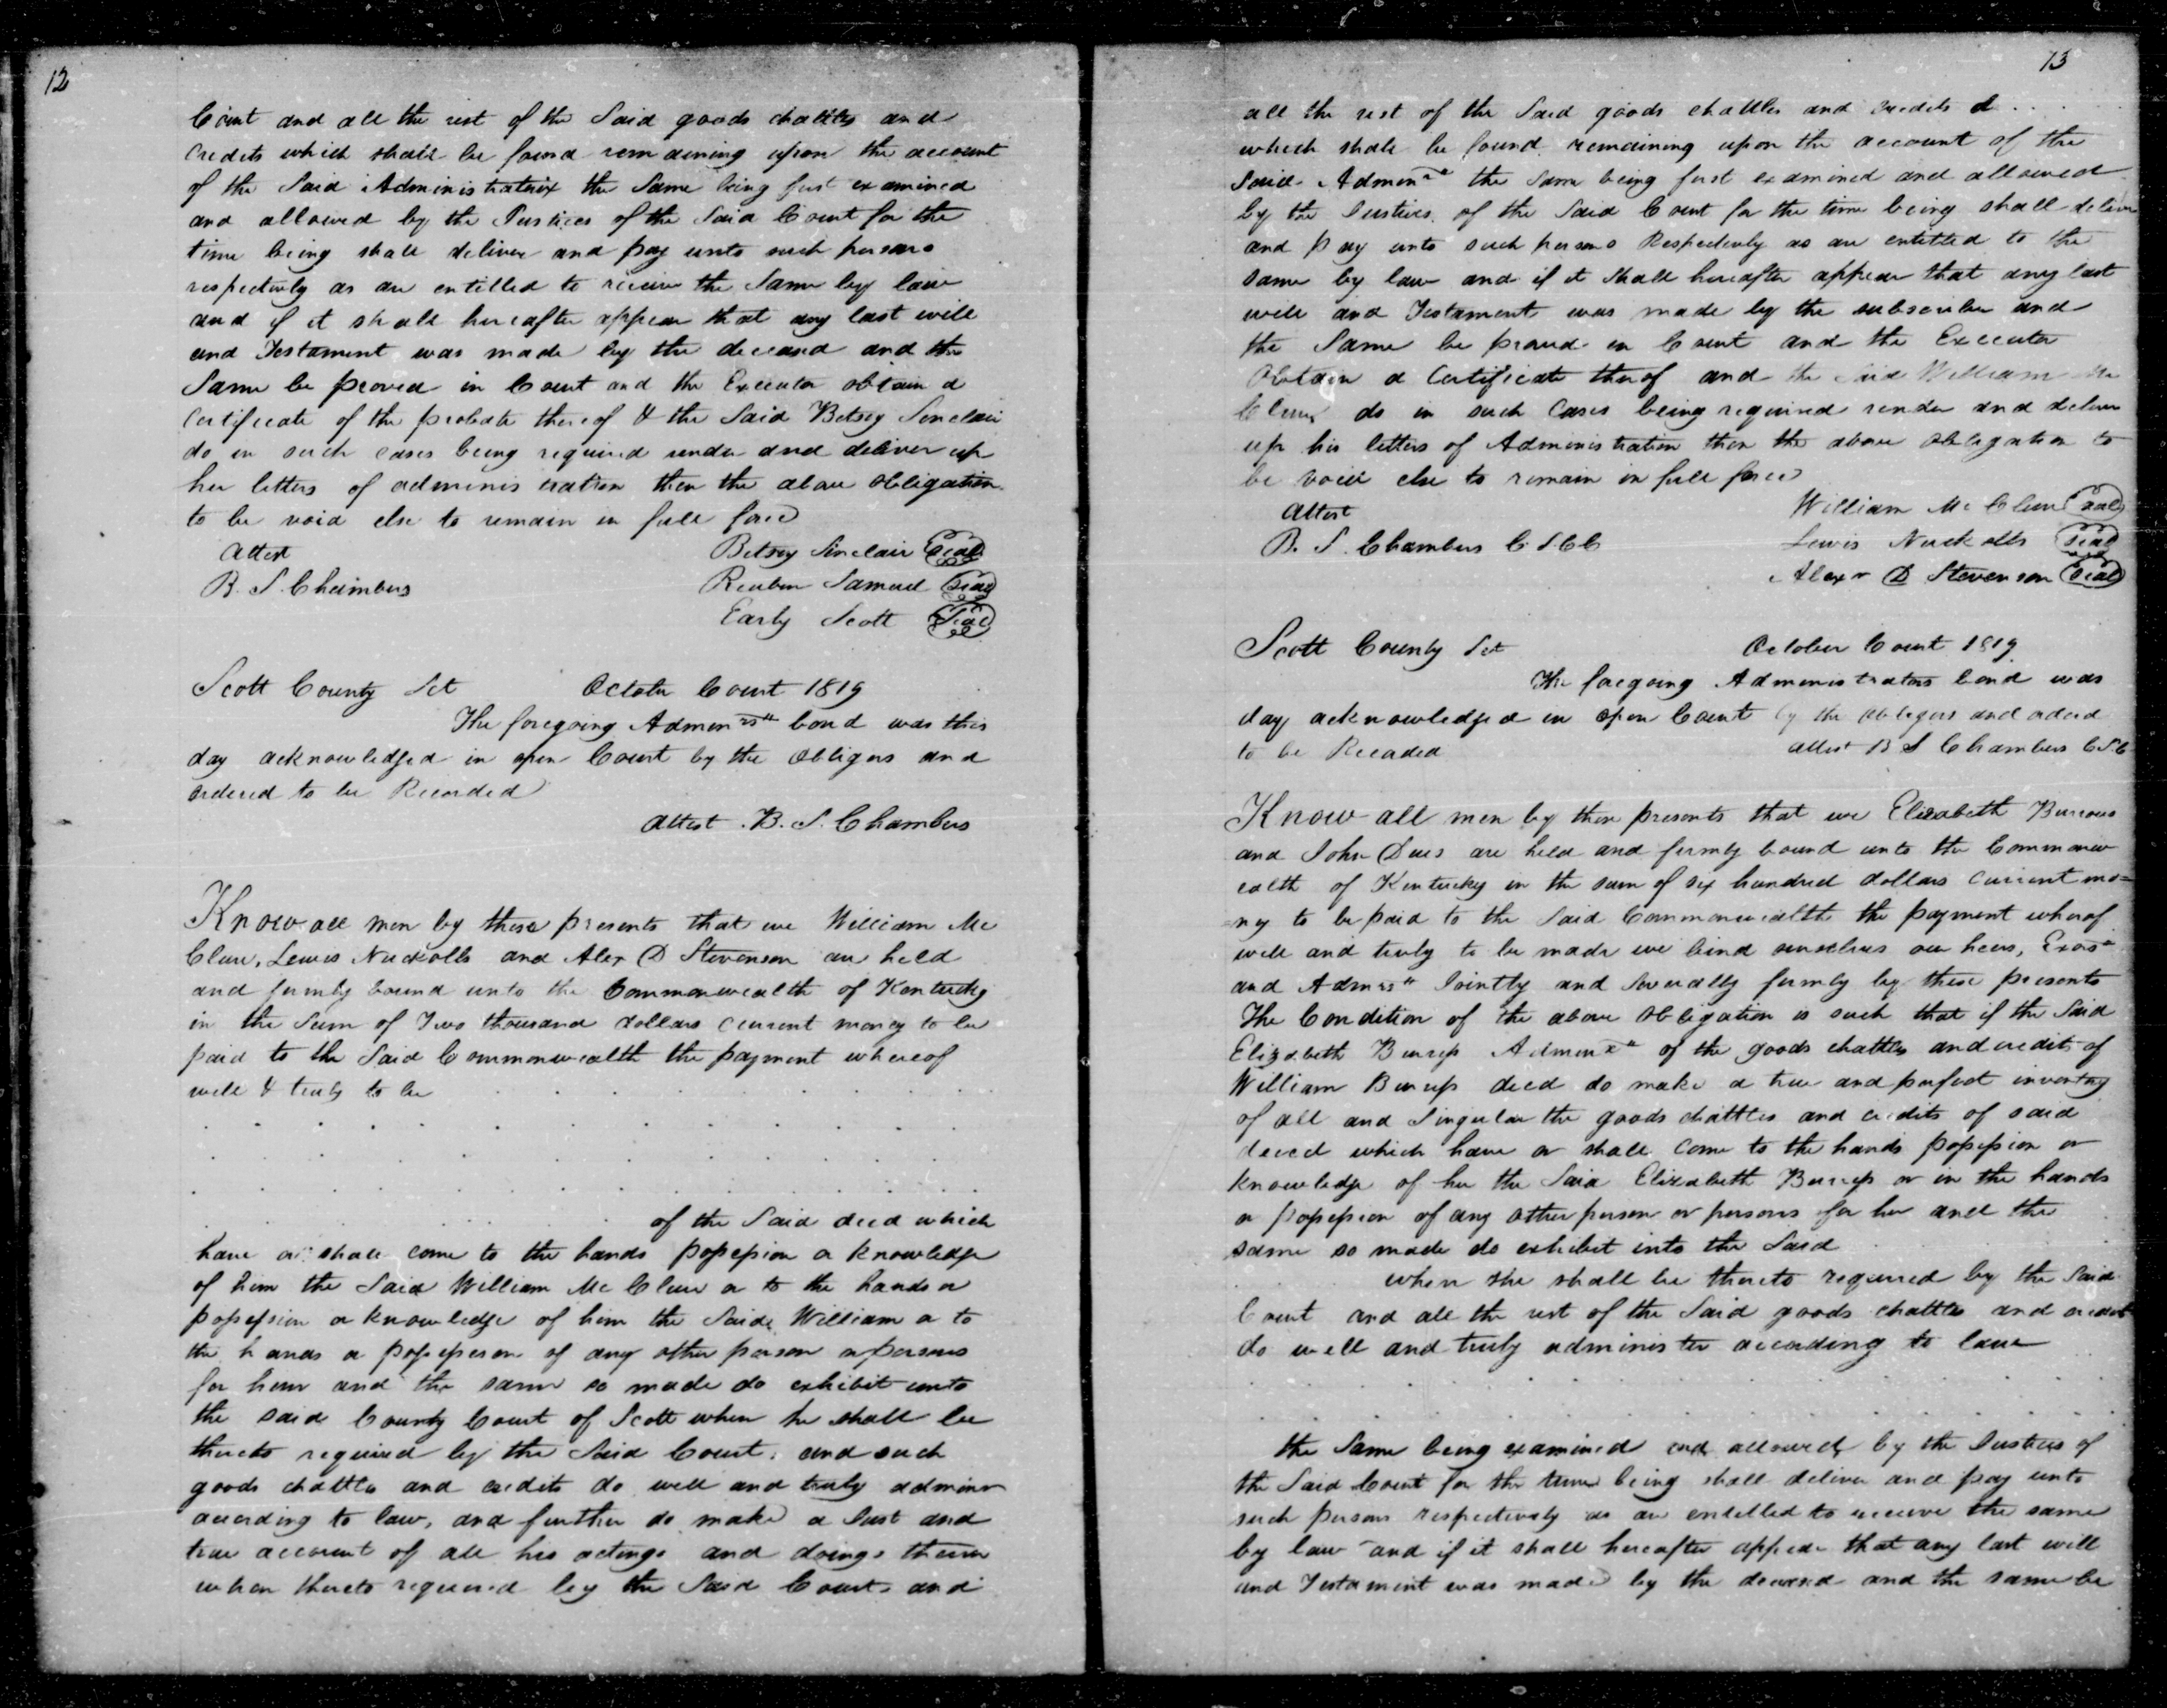 12
Court and all the rest of the Said goods chattles and
Credits which shall be found remaining upon the account
of the Said Administratrix the Same being first examined
and allowed by the Justices of the Said Court for the
time being shall deliver and pay unto such persons
respectively as are entitled to receive the Same by law
and if it shall hereafter appear that any last will
and Testament was made by the deceasd and the
Same be proved in Court and the Executor obtain a
Certificate of the probate thereof & the Said Betsey Sinclair
do in such cases being required render and deliver up
her letters of administration then the above obligation
to be void else to remain in full force
Attest Betsey Sinclair Seal
B. S. Chambers Reuben Samuel Seal
Early Scott Seal
Scott County Sct October Court 1819
The foregoing Admonrs bond was this
day acknowledged in open Court by the Obligors and
ordered to be Recorded
Attest B. S. Chambers
Know all men by these presents that we William Mc
Clure, Lewis Nuckolls and Alex D Stevenson are held
and firmly bound unto the Commonwealth of Kentucky
in the Sum of Two thousand dollars current money to be
paid to the Said Commonwealth the payment whereof
well & truly to be . . . . . . .
. . . . . . . . . . . .
. . . . . . . . . . . .
. . . . . . . . . . . .
. . . . . of the Said decd which
have or shall come to the hands possession or knowledge
of him the Said William Mc Clure or to the hands or
possession or knowledge of him the Said William or to
the hands or possession of any other person or persons
for him and the same so made do exhibit unto
the said County Court of Scott when he shall be
thereto required by the Said Court, and such
goods chattles and credits do well and truly adminr
according to law, and further do make a Just and
true account of all his actings and doings therein
when thereto required by the Said Court and
13
all the rest of the Said goods chattles and credits &
which shall be found remaining upon the account of the
Said Admonr the Same being first examined and allowed
by the Justices of the Said Court for the time being shall deliver
and pay unto such persons Respectively as are entitled to the
same by law and if it shall hereafter appear that any last
will and Testament was made by the subscriber and
the Same be proved in Court and the Executor
Obtain a Certificate therof and the Said William Mc
Clure do in such Cases being required render and deliver
up his letters of Administration then the above obligation to
be void else to remain in full force
Attest William Mc Clure Seal
B. S. Chambers C S C C Lewis Nuckolls Seal
Alexr D Stevenson Seal
Scott County Sct October Court 1819
The foregoing Administrators bond was
day acknowledged in open Court by the obligors and orderd
to be Recorded Attest B S Chambers C S C
Know all men by these presents that we Elizabeth Burrows
and John Dues are held and firmly bound unto the Commonw
ealth of Kentucky in the sum of six hundred dollars current mo=
ny to be paid to the Said Commonwealth the payment wherof
well and truly to be made we bind ourselves our heirs, Exors
and Admrs Jointly and Severally firmly by these presents
The Condition of the above Obligation is such that if the Said
Elizabeth Burrup Admonx of the goods chattles and credits of
William Burrup decd do make a true and perfect inventory
of all and Singular the goods chattles and credits of said
decd which have or shall come to the hands possession or
knowledge of her the Said Elizabeth Burrup or in the hands
or possession of any other person or persons for her and the
same so made do exhibit into the Said
when she shall be thereto required by the Said
Court and all the rest of the Said goods chattles and credits
do well and truly administer according to law
. . . . . . . . . . . .
. . . . . . . . . . . .
the Same being examined and allowed by the Justices of
the Said Court for the time being shall deliver and pay unto
such persons respectively as are entitled to receive the same
by law and if it shall hereafter appear that any last will
and Testament was made by the deceasd and the same be